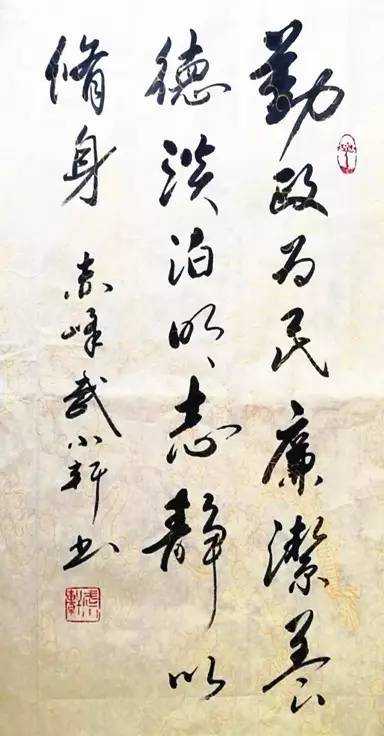 勤政为民廉潔养
德淡泊明志静以
脩身
赤峰武小轩书